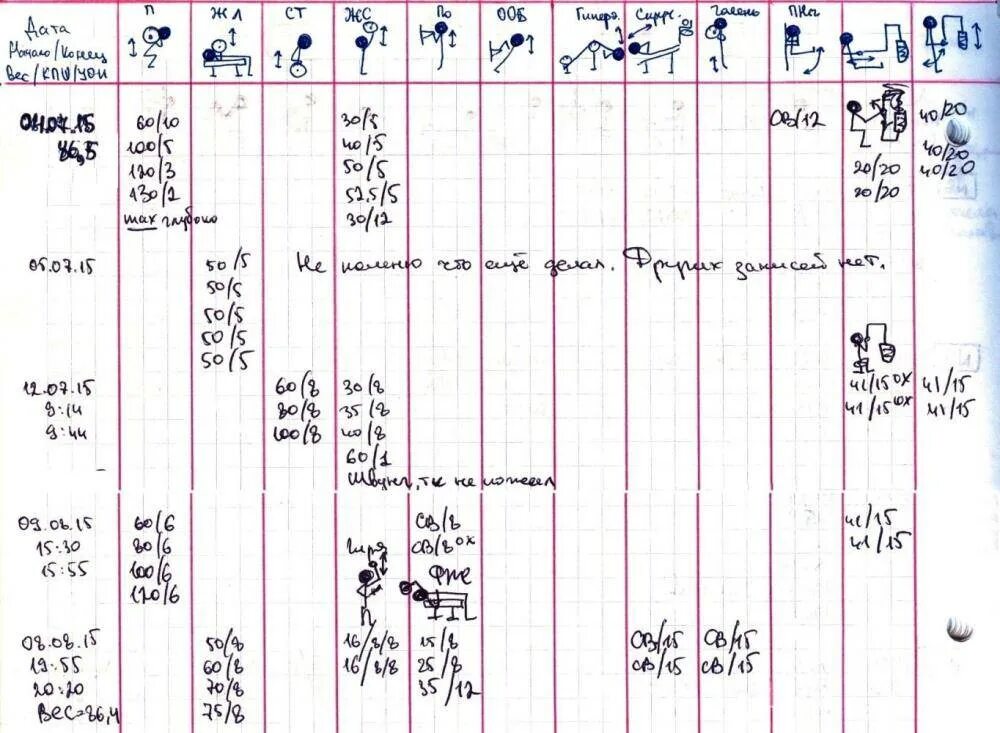 Дата П ЖЛ СТ ЖС По ООБ Гиперэ. Скруч. Голень ПНог
Начало/Конец
Вес/КПШ/УОИ
07.15 60/10 30/5 СВ/12 40/20
86,5 100/5 40/5 40/20
120/3 50/5 20/20 40/20
130/2 52,5/5 20/20
max глубоко 30/12
05.07.15 50/5 Не помню что ещё делал. Других записей нет.
50/5
50/5
50/5
50/5
12.07.15 60/8 30/8 41/15 ох 41/15
9:14 80/8 35/8 41/15 ох 41/15
9:44 100/8 40/8
60/1
Швунг, тк не пожал
09.08.15 60/6 СВ/8 41/15
15:30 80/6 гиря СВ/8 ох 41/15
15:55 100/6
120/6
08.08.15 50/8 16/8/8 15/8 СВ/15 СВ/15
19:55 60/8 16/8/8 25/8 СВ/15 СВ/15
20:20 70/8 35/12
ВЕС=86,4 75/8